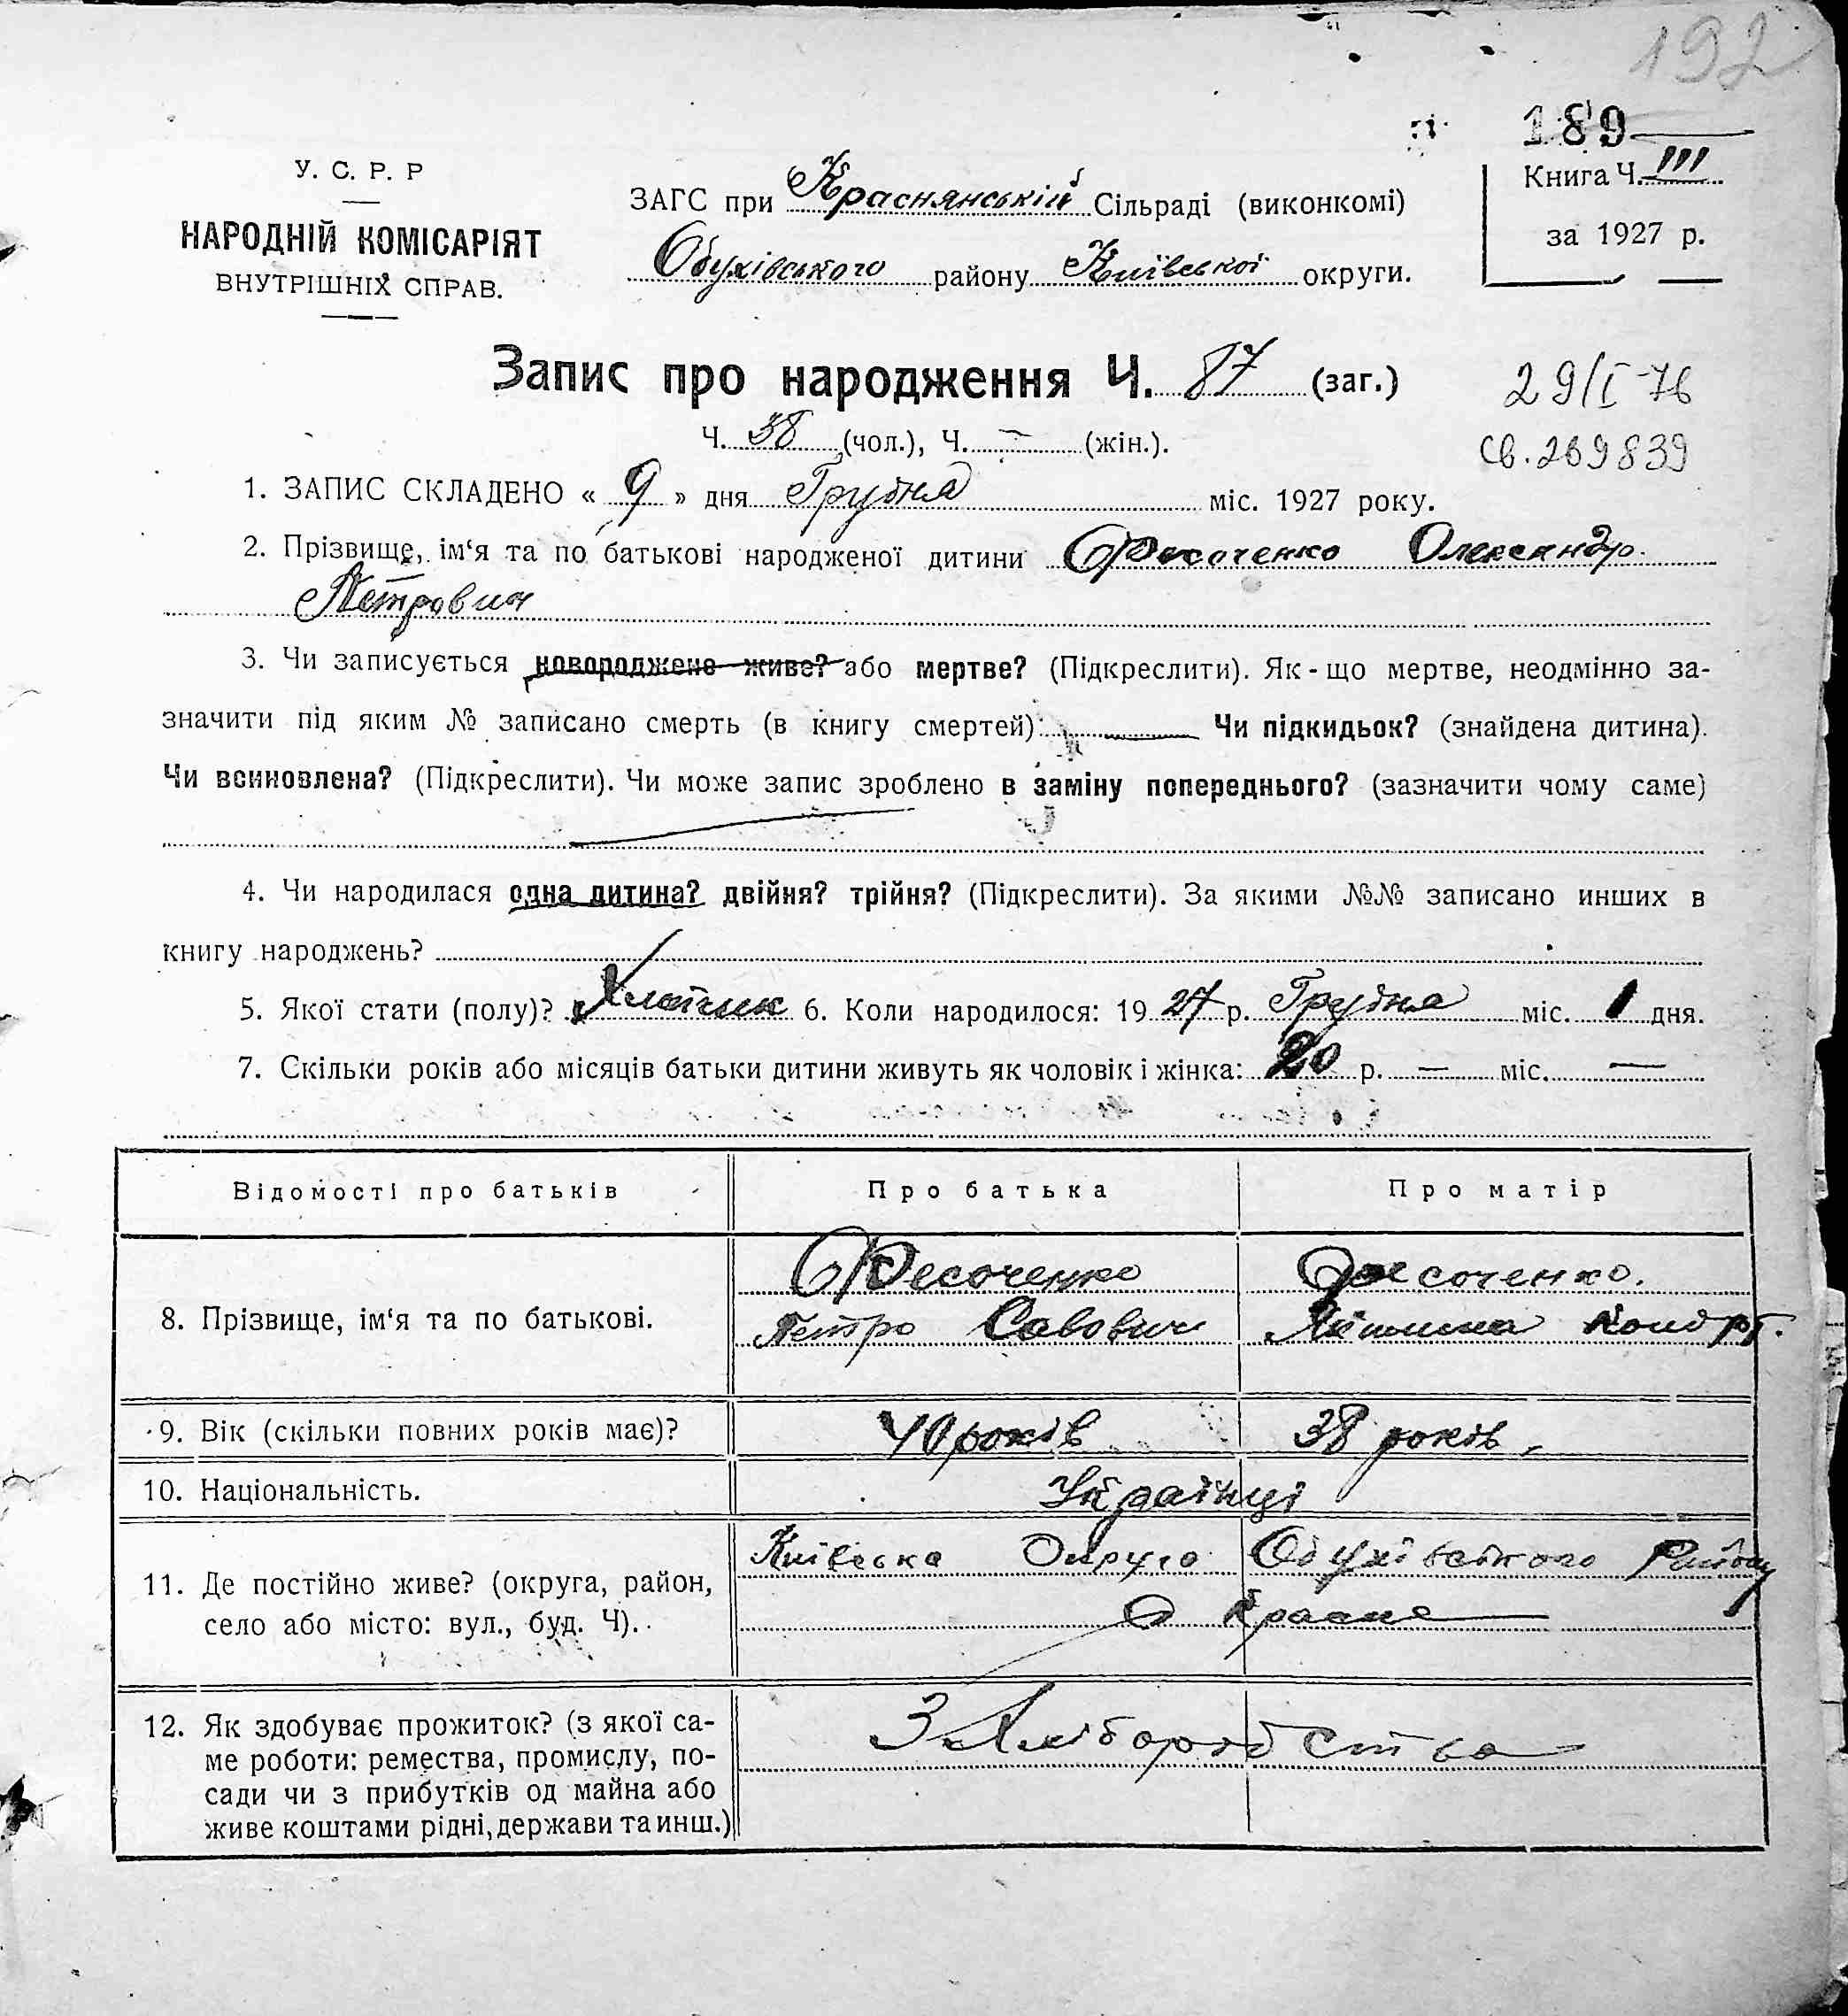 192
189
У. С. Р. Р
НАРОДНІЙ КОМІСАРІЯТ
ВНУТРІШНІХ СПРАВ.
ЗАГС при Краснянській Сільраді (виконкомі)
Обухівського району Київської округи.
Книга Ч. III
за 1927 р.
Запис про народження Ч. 87 (заг.)
29/I-76
Ч. 38 (чол.), Ч. — (жін.).
св. 269839
1. ЗАПИС СКЛАДЕНО « 9 » дня Грудня міс. 1927 року.
2. Прізвище, ім‘я та по батькові народженої дитини Фесоченко Олександр
Петрович
3. Чи записується новороджене живе? або мертве? (Підкреслити). Як-що мертве, неодмінно за-
значити під яким № записано смерть (в книгу смертей) — Чи підкидьок? (знайдена дитина).
Чи всиновлена? (Підкреслити). Чи може запис зроблено в заміну попереднього? (зазначити чому саме)
4. Чи народилася одна дитина? двійня? трійня? (Підкреслити). За якими №№ записано инших в
книгу народжень?
5. Якої стати (полу)? Хлопчик 6. Коли народилося: 1927 р. Грудня міс. 1 дня.
7. Скільки років або місяців батьки дитини живуть як чоловік і жінка: 20 р. — міс. —
Відомості про батьків Про батька Про матір
8. Прізвище, ім‘я та по батькові.
Фесоченко Фесоченко.
Петро Савович Кондрт.
9. Вік (скільки повних років має)? 40 років 38 років,
10. Національність. Українці
11. Де постійно живе? (округа, район,
село або місто: вул., буд. Ч).
Київська Округа Обухівського Району
с Красне
12. Як здобуває прожиток? (з якої са-
ме роботи: ремества, промислу, по-
сади чи з прибутків од майна або
живе коштами рідні, держави та инш.)
З Хліборобства